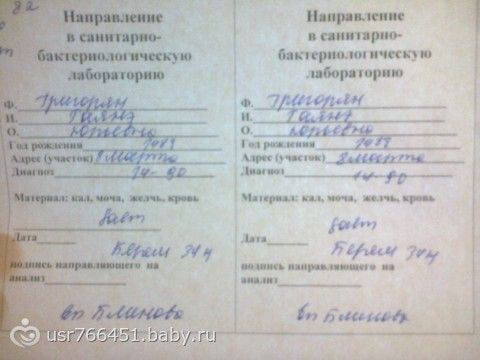 82
Направление
в санитарно-
бактериологическую
лабораторию
Ф. Григорян
И. Гаянэ
О. Юрьевна
Год рождения 1989
Адрес (участок) 8 марта
Диагноз 14-90
Материал: кал, моча, желчь, кровь
Дата
34 н
подпись направляющего на
анализ
Блинова
Направление
в санитарно-
бактериологическую
лабораторию
Ф. Григорян
И. Гаянэ
О. Юрьевна
Год рождения 1989
Адрес (участок) 8 марта
Диагноз 14-90
Материал: кал, моча, желчь, кровь
Дата
34 н
подпись направляющего на
анализ
Блинова
usr766451.baby.ru